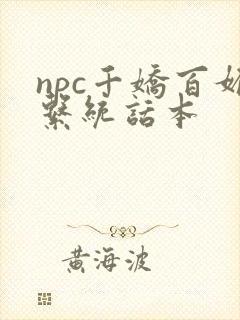 npc千嬌百媚
繫統話本
黃海波